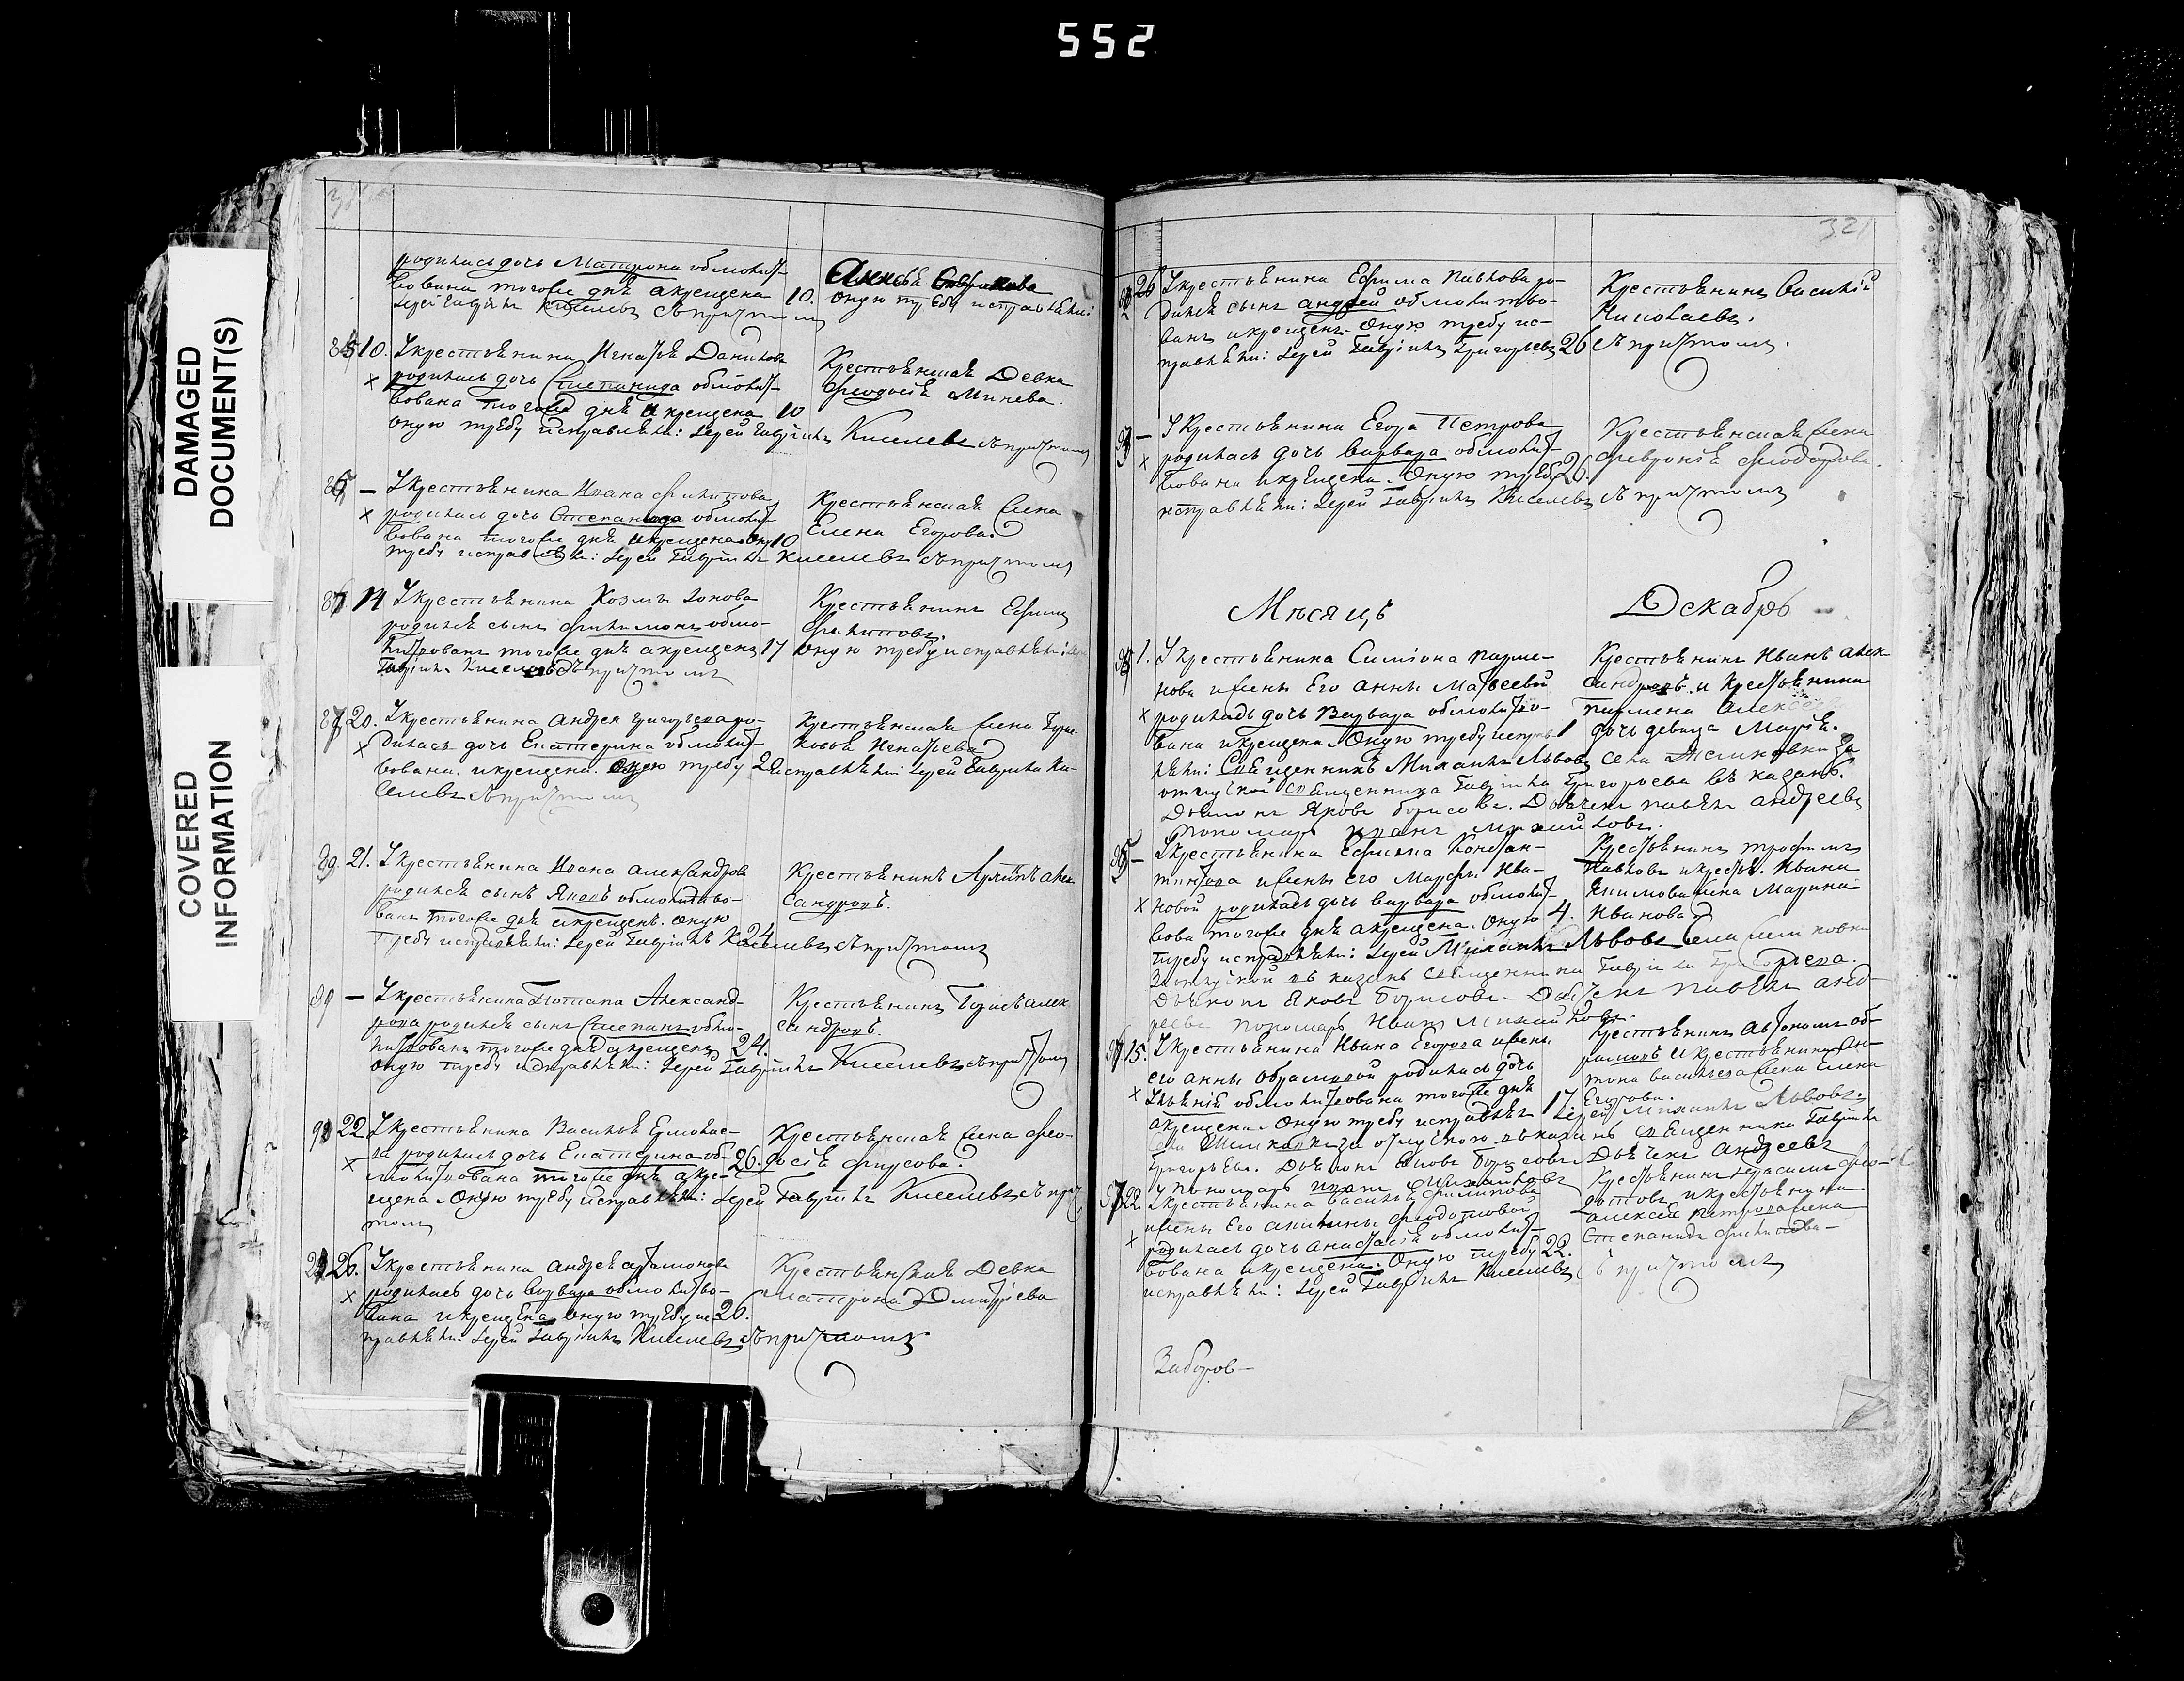 552
DAMAGED
DOCUMENT(S)
COVERED
INFORMATION
родилась дочь Матрона обмолит-
вована тогоже днѣ акрещена 10.
Іерей Гавріилъ Киселевъ съ причтомъ
оную требу исправляли:
10. Укрестьянина Игнатья Данилова
родилась дочь Степанида обмолит-
вована тогоже днѣ и крещена 10
оную требу исправляли: Іерей Гавріилъ Киселевъ съ причтомъ
Крестьянская Девка
Феодосія Минева.
— Укрестьянина Ивана Филиппова
родилась дочь Степанида обмолит-
вована тогоже днѣ и крещена 10
требу исправляли: Іерей Гавріилъ Киселевъ съ причтомъ
Крестьянская жена
Елена Егорова
14 Укрестьянина Козмы Іонова
родился сынъ Филимонъ обмо-
литвованъ тогоже днѣ акрещенъ 17
Гавріилъ Киселевъ съ причтомъ
Крестьянинъ Ефимъ
Филиповъ.
оную требу исправляли:
20. Укрестьянина Андрея Григорьева ро-
дилась дочь Екатерина обмолит-
вована. икрещена. оную требу 20 исправляли: Іерей Гавріилъ Ки-
селевъ съ причтомъ
Крестьянская жена
Игнатьева
89. 21. Укрестьянина Ивана Александрова
родился сынъ Яковъ обмолитво-
ванъ тогоже днѣ икрещенъ. оную 24
требу исправляли: Іерей Гавріилъ Киселевъ съ причтомъ
Крестьянинъ Архипъ Алек-
сандровъ.
— Укрестьянина Потапа Александ-
рова родился сынъ Степанъ обмо-
литвованъ тогоже днѣ акрещенъ 24.
оную требу исправляли: Іерей Гавріилъ Киселевъ съ причтомъ
Крестьянинъ Борисъ Алек-
сандровъ.
22 Укрестьянина Василья Ермолае-
ва родилась дочь Екатерина об- 26.
молитвована тогоже днѣ акре-
щена. Оную требу исправляли: Іерей Гавріилъ Киселевъ съ прич
томъ
Крестьянская жена Фео-
досія Фирсова.
26. Укрестьянина Андрея Артамонова
родилась дочь Варвара обмолитво-
вана икрещена оную требу ис- 26.
правляли: Іерей Гавріилъ Киселевъ съ причтомъ
Крестьянская Девка
Матрона Дмитріева
321
26 Укрестьянина Ефима Павлова ро-
дился сынъ Андрей обмолитво-
ванъ икрещенъ. Оную требу ис-
правляли: Іерей Гавріилъ Григорьевъ 26 съ причтомъ.
Крестьянинъ Василій
Николаевъ.
— Укрестьянина Егора Петрова
родилась дочь Варвара обмолит-
вована икрещена. Оную требу 26.
исправляли: Іерей Гавріилъ Киселевъ съ причтомъ
Крестьянская жена
Февронія Феодорова.
Мѣсяцъ Декабрь
1. Укрестьянина Симіона Парме-
нова ижены Его Анны Матвеевой
родилась дочь Варвара обмолитво-
вана икрещена. Оную требу исправ- 1
ляли: Священникъ Михаилъ Львовъ села за
отлучкой священника Гавріила Григорьева въ Казань.
Дьяконъ Яковъ Борисовъ. Дьячекъ Павелъ Андреевъ
Пономарь Иванъ Михайловъ.
Крестьянинъ Иванъ Алек-
сандровъ. и Крестьянина
Пармена
дочь девица Марія.
— Укрестьянина Ефима Констан-
тинова ижены его Марфы Ива-
новой родилась дочь Варвара обмолит-
вова тогоже днѣ акрещена. Оную 4.
требу исправляли: Іерей Михаилъ Львовъ села
за отлучкой въ казань священника Гавріила Григорьева.
Дьяконъ Яковъ Борисовъ — Дьячекъ Павелъ Анд-
реевъ пономарь Иванъ Михайловъ.
Крестьянинъ Трофимъ
Павловъ икрестья. Ивана
Якимова жена Марина
Иванова
15. Укрестьянина Ивана Егорова ижены
его Анны Абрамовой родилась дочь
обмолитвована тогоже днѣ
акрещена. Оную требу исправлялъ 17 Іерей Михаилъ Львовъ.
за отлучкою въ казань священника Гавріила
Григорьева. Дьяконъ Яковъ Борисовъ Дьячекъ Андреевъ
пономарь Иванъ Михайловъ
Крестьянинъ Автономъ Аб-
рамовъ и крестьянина Ан-
тона Васильева жена Елена
Егорова.
22. Укрестьянина Василья Филипова
ижены Его Акилины Феодотовой
родилась дочь Анастасія обмолит-
вована икрещена. Оную требу 22.
исправляли: Іерей Гавріилъ Киселевъ съ причтомъ
Крестьянинъ Герасимъ Фео-
дотовъ икрестьянина
Алексея Петрова жена
Степанида